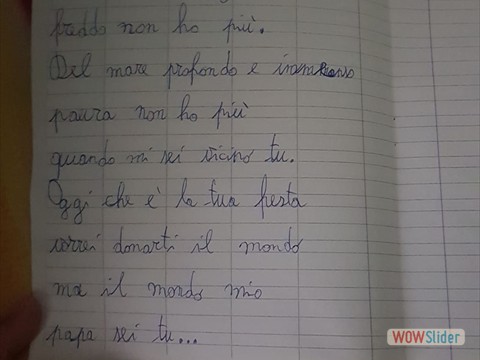 freddo non ho più.
Del mare profondo e immenso
paura non ho più
quando mi sei vicino tu.
Oggi che è la tua festa
vorrei donarti il mondo
ma il mondo mio
papa sei tu...
WOWSlider